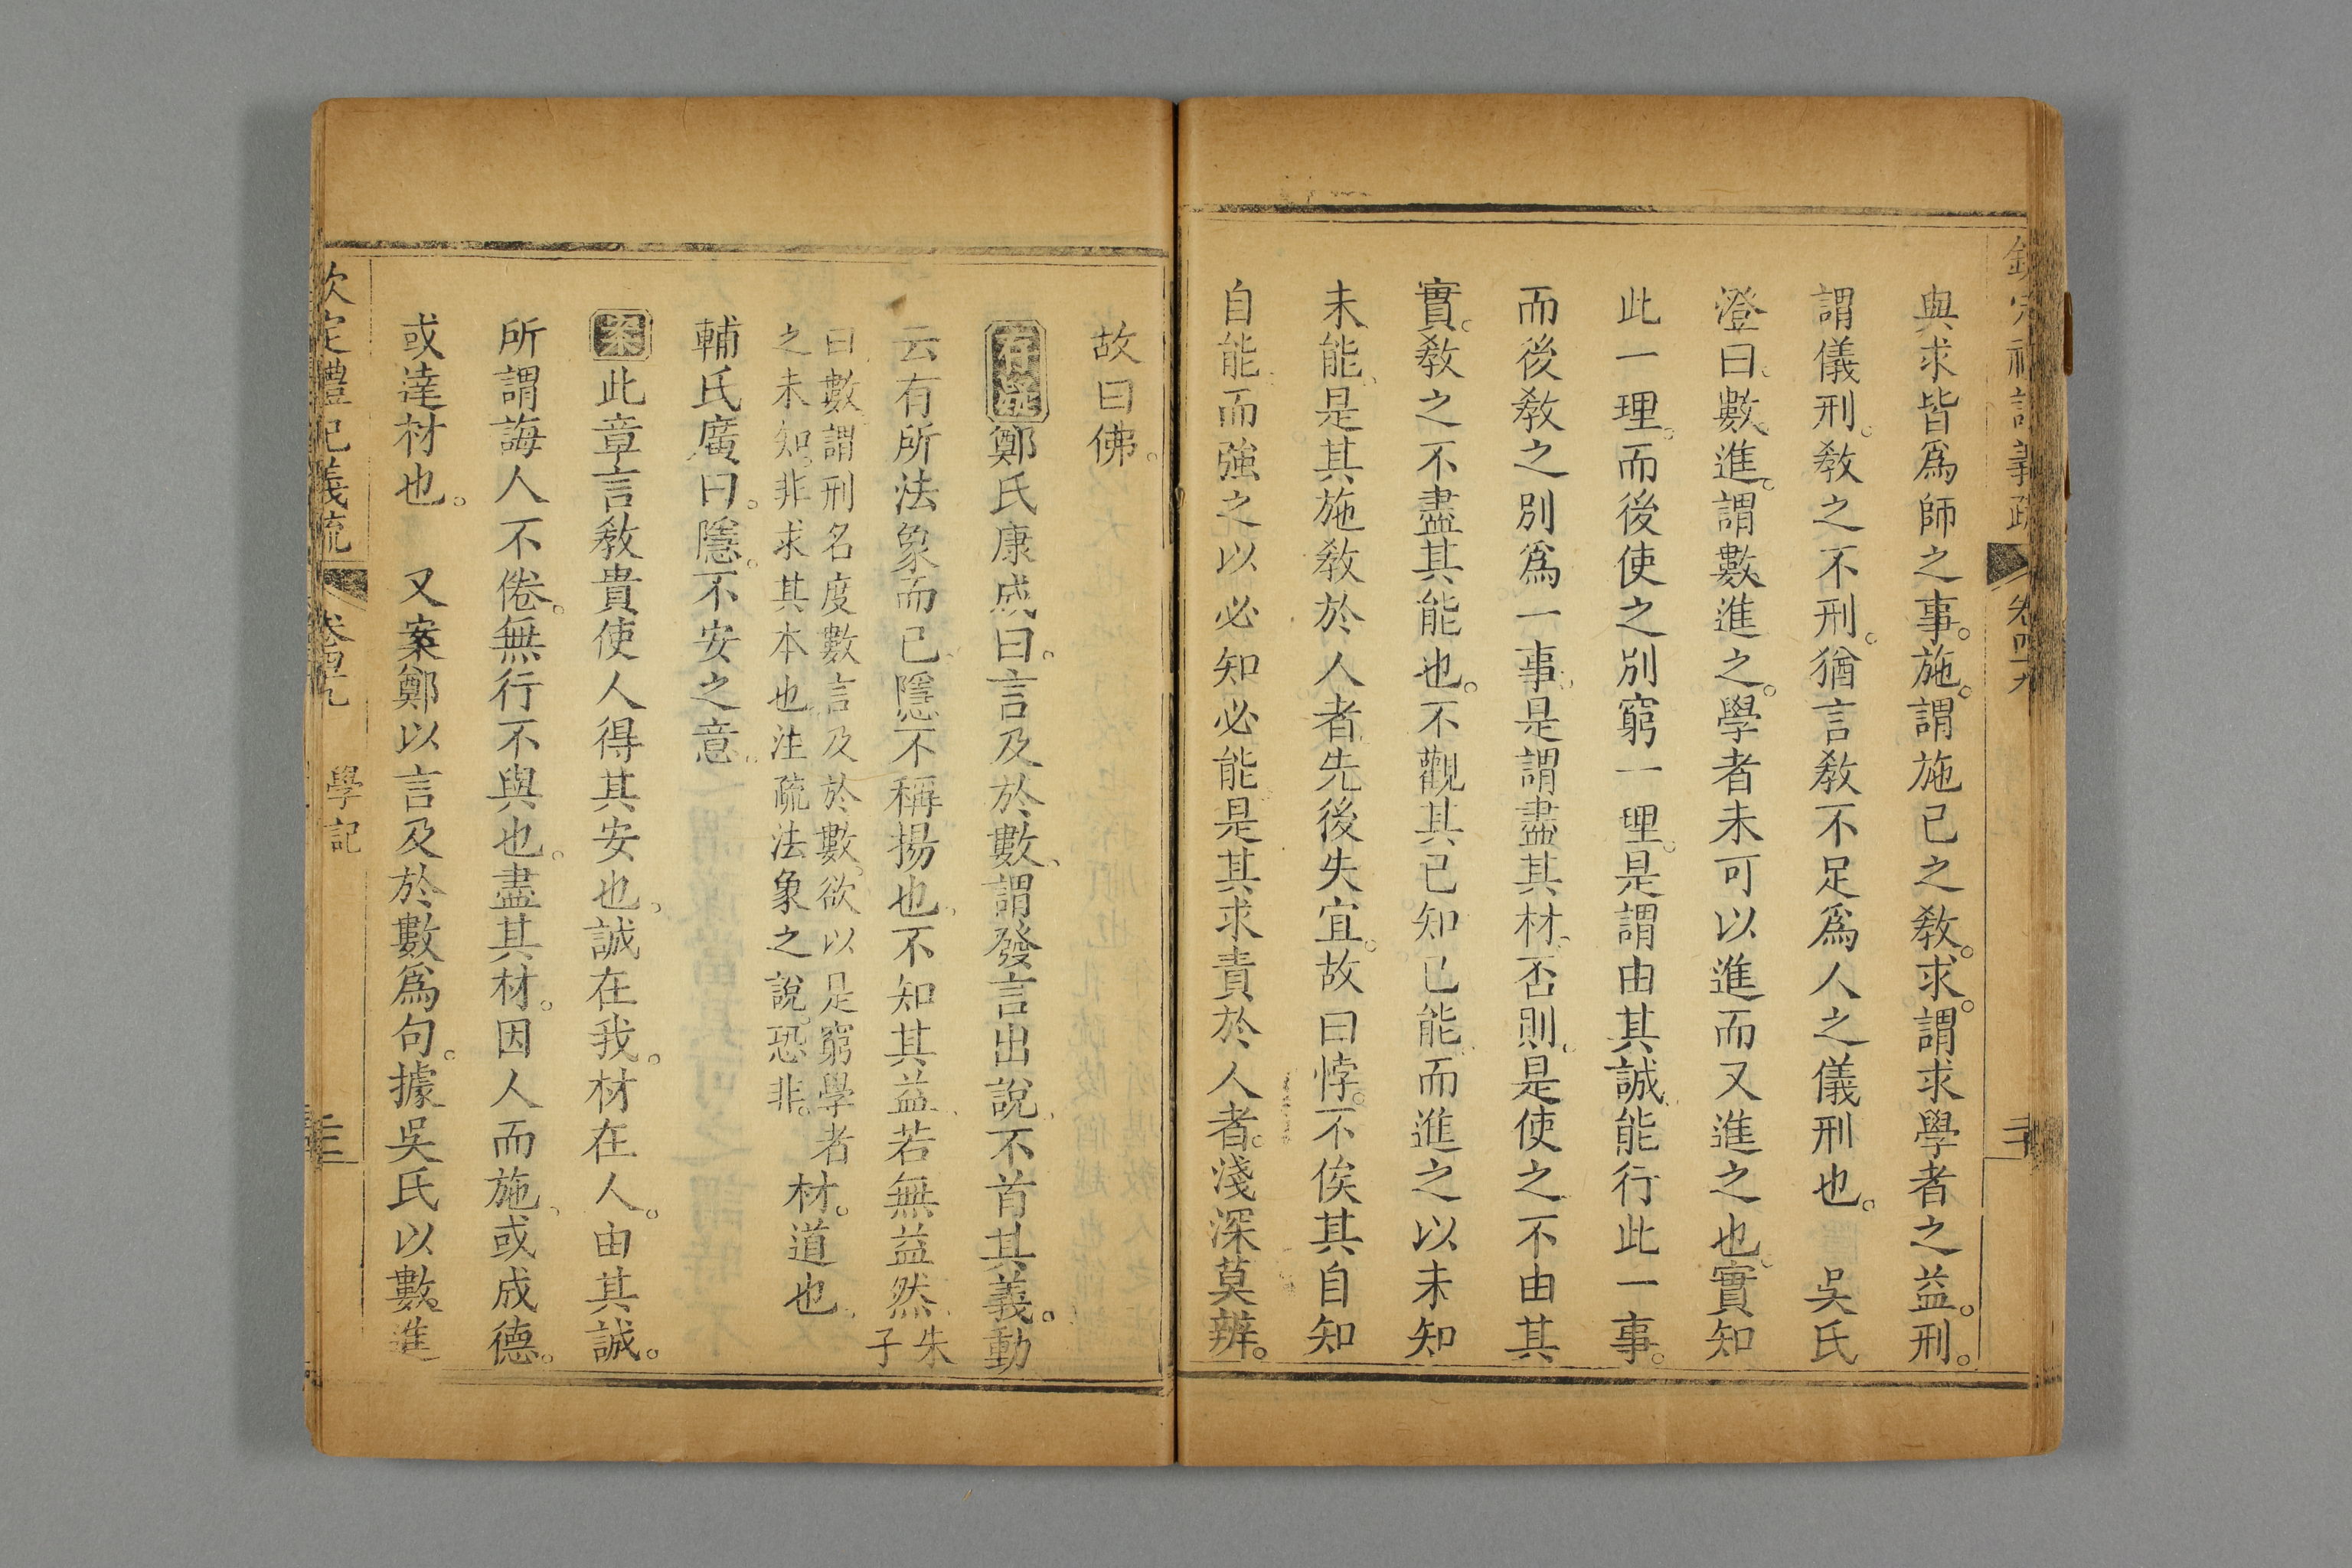 與求皆爲師之事。施。謂施已之敎。求。謂求學者之益。刑。
謂儀刑。敎之不刑。猶言敎不足爲人之儀刑也。　吳氏
澄曰。數進。謂數進之。學者未可以進而又進之也。實知
此一理。而後使之別窮一理。是謂由其誠。能行此一事。
而後敎之別爲一事。是謂盡其材。否則。是使之不由其
實。敎之不盡其能也。不觀其已知已能。而進之以未知
未能。是其施敎於人者。先後失宜。故曰悖。不俟其自知
自能。而強之以必知必能。是其求責於人者。淺深莫辨。
故曰佛。
存疑鄭氏康成曰。言及於數、謂發言出說、不首其義。動
云有所法象而已。隱不稱揚也、不知其益、若無益然、朱子
曰數謂刑名度數言及於數。欲以是窮學者
之未知。非求其本也。注疏法象之說。恐非。
材。道也、
輔氏廣曰。隱。不安之意、
案此章言敎貴使人得其安也。誠在我。材在人。由其誠。
所謂誨人不倦。無行不與也。盡其材。因人而施、或成德。
或達材也。　又案鄭以言及於數爲句。據吳氏以數。進
欽定禮記義疏　卷四十九　學記